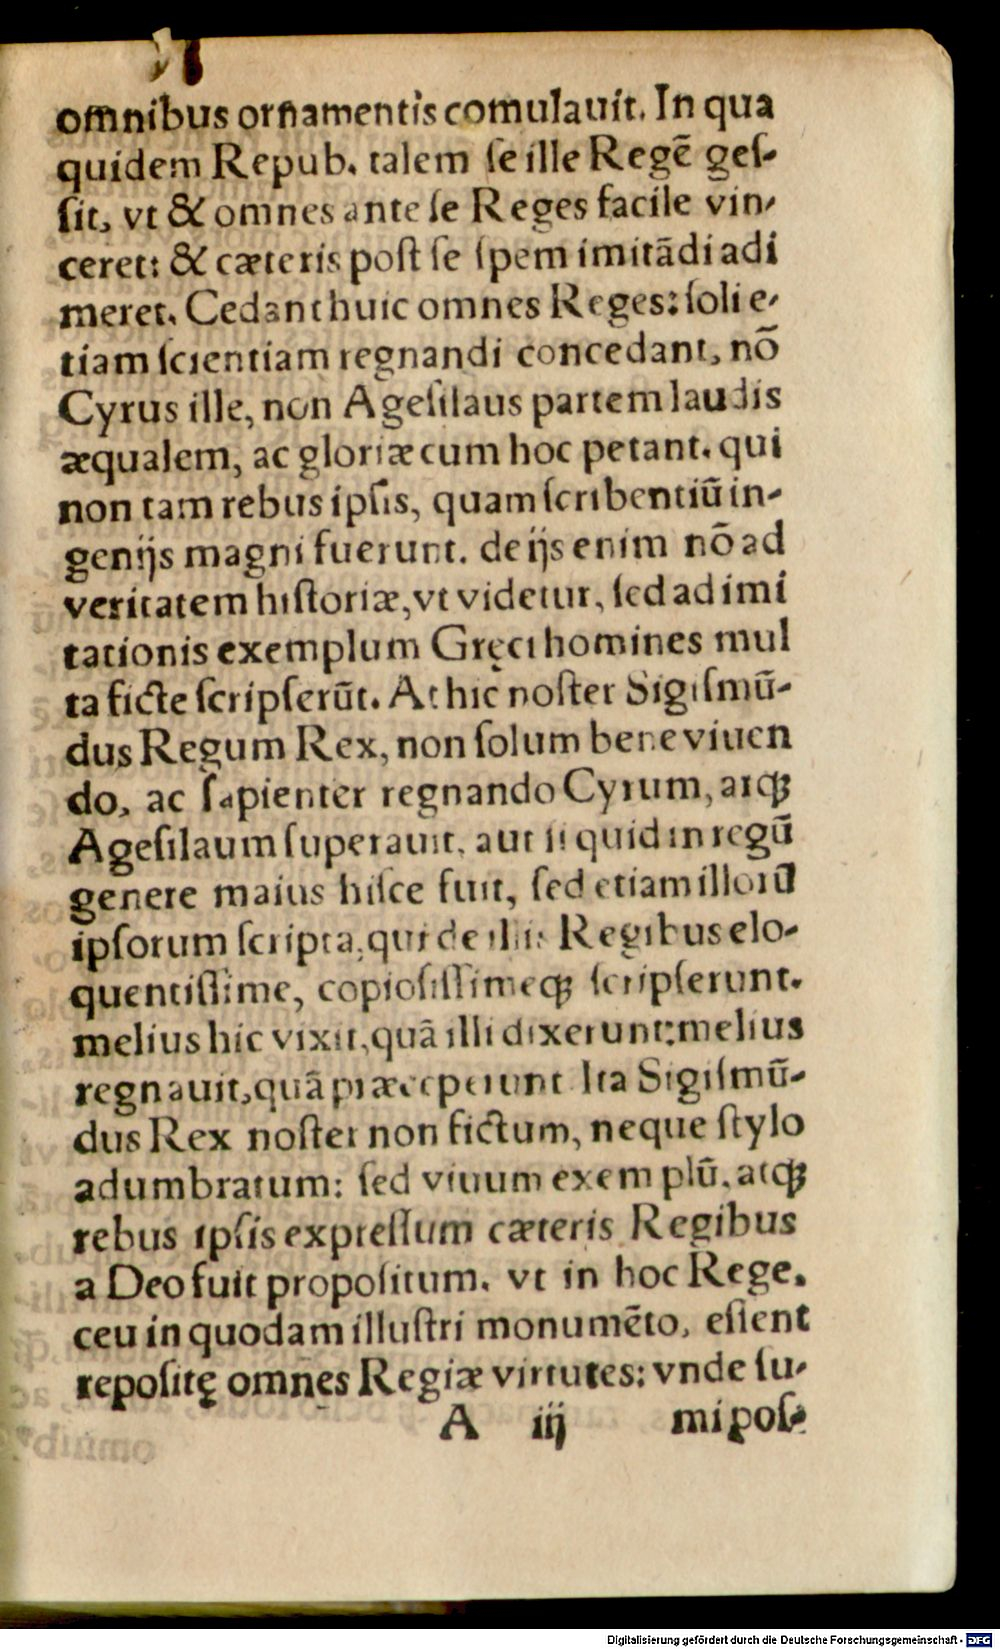 omnibus ornamentis comulauit. In qua
quidem Repub. talem ſe ille Regē geſ-
ſit, vt & omnes ante ſe Reges facile vin-
ceret: & cæteris poſt ſe ſpem imitādi adi
meret. Cedant huic omnes Reges: ſoli e-
tiam ſcientiam regnandi concedant, nō
Cyrus ille, non Ageſilaus partem laudis
æqualem, ac gloriæ cum hoc petant. qui
non tam rebus ipſis, quam ſcribentiū in-
genijs magni fuerunt. de ijs enim nō ad
veritatem hiſtoriæ, vt videtur, ſed ad imi
tationis exemplum Gręci homines mul
ta ficte ſcripſerūt. At hic noſter Sigiſmū-
dus Regum Rex, non ſolum bene viuen
do, ac ſapienter regnando Cyrum, atqꝫ
Ageſilaum ſuperauit. aut ſi quid in regū
genere maius hiſce fuit, ſed etiam illorū
ipſorum ſcripta, qui de illis Regibus elo-
quentiſſime, copioſiſſimeqꝫ ſcripſerunt.
melius hic vixit, quā illi dixerunt: melius
regnauit, quā præceperunt Ita Sigiſmū-
dus Rex noſter non fictum, neque ſtylo
adumbratum: ſed viuum exemplū, atqꝫ
rebus ipſis expreſſum cæteris Regibus
a Deo fuit propoſitum. vt in hoc Rege.
ceu in quodam illuſtri monumēto, eſſent
repoſitę omnes Regiæ virtutes: vnde ſu-
A iij mi poſ-
Digitalisierung gefördert durch die Deutsche Forschungsgemeinschaft - DFG